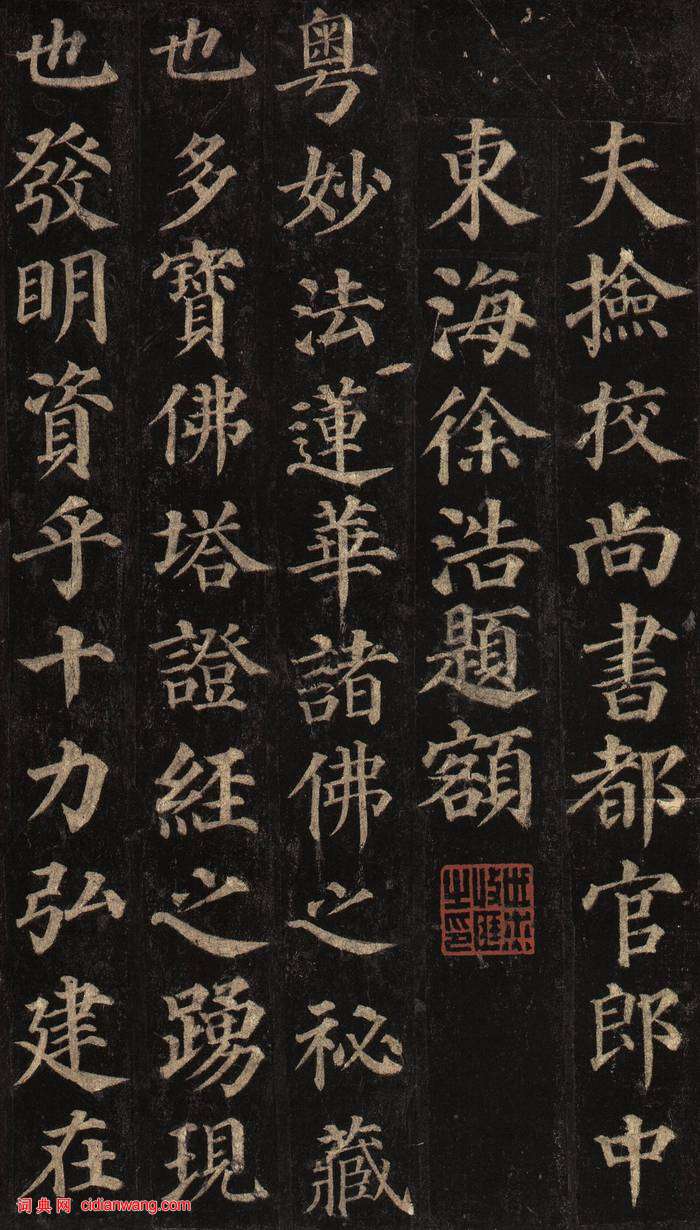 夫撿挍尚書都官郎中
東海徐浩題額
粤妙法蓮華諸佛之祕藏
也多寶佛塔證經之踴現
也發明資乎十力弘建在
词典网 cidianwang.com